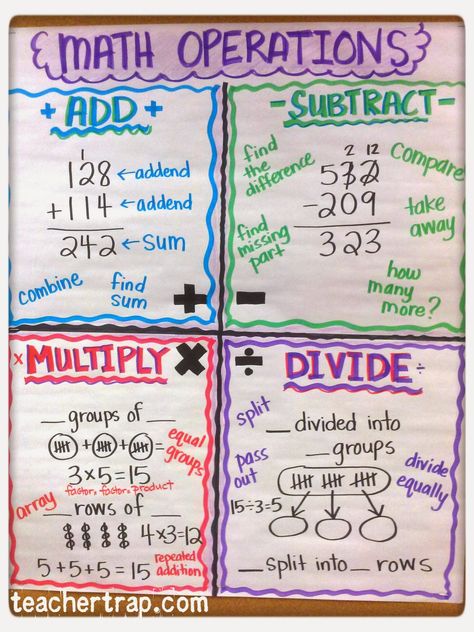 MATH OPERATIONS
+ ADD +
128 ← addend
+114 ← addend
242 ← sum
combine
find
sum
+
- SUBTRACT -
find
the
difference
2 12
532
-209
323
Compare
take
away
find
missing
part
how
many
more?
-
x MULTIPLY X
__ groups of __
+ + =
equal
groups
3x5=15
factor x factor = product
array
__ rows of __
4x3=12
5+5+5=15
repeated
addition
÷ DIVIDE ÷
split
__ divided into
__ groups
pass
out
divide
equally
15÷3=5
__ split into __ rows
teachertrap.com